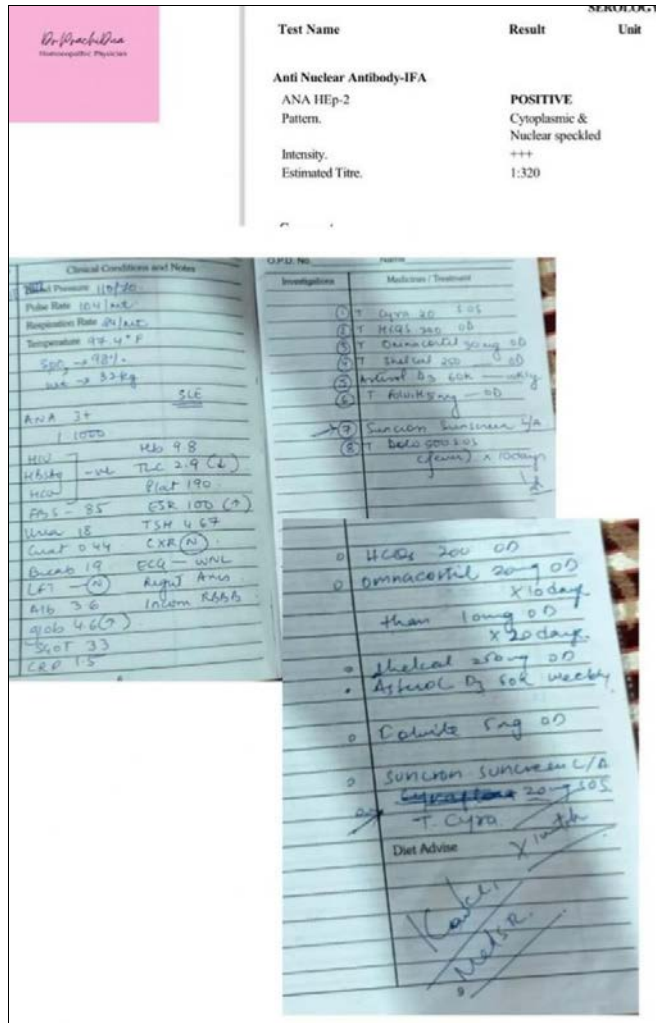 Dr. Prachi Dua
Homoeopathic Physician
SEROLOGY
Test Name Result Unit
Anti Nuclear Antibody-IFA
ANA HEp-2 POSITIVE
Pattern. Cytoplasmic &
Nuclear speckled
Intensity. +++
Estimated Titre. 1:320
Clinical Conditions and Notes
Blood Pressure 110/70
Pulse Rate 104/mt
Respiration Rate
Temperature 97.4°F
SpO2 → 98%
wt → 32kg
SLE
ANA 3+
1:1000
HIV
HBsAg -ve
HCV
FBS - 85
Urea 18
Creat 0.44
19
LFT - N
Alb 3.6
glob 4.6(↑)
SGOT 33
CRP 1.5
Hb 9.8
TLC 2.9 (↓)
Plat 190
ESR 100 (↑)
TSH 4.67
CXR N
ECG - WNL
Right Axis
Incom RBBB
O.P.D. No. Name
Investigations Medicines / Treatment
1 T Cyra 20 SOS
2 T HCQS 200 OD
3 T Omnacortil 30mg OD
4 T Shelcal 250 OD
5 D3 60K weekly
6 T Folvite 5mg - OD
7 Suncron Sunscreen L/A
8 T Dolo 500 SOS
(fever) x 10days
HCQs 200 OD
Omnacortil 20mg OD
x 10 days
than 10mg OD
x 20 days
Shelcal 250mg OD
D3 60K weekly
5mg OD
Suncron Suncreen L/A
20mg SOS
T. Cyra
Diet Advise
9